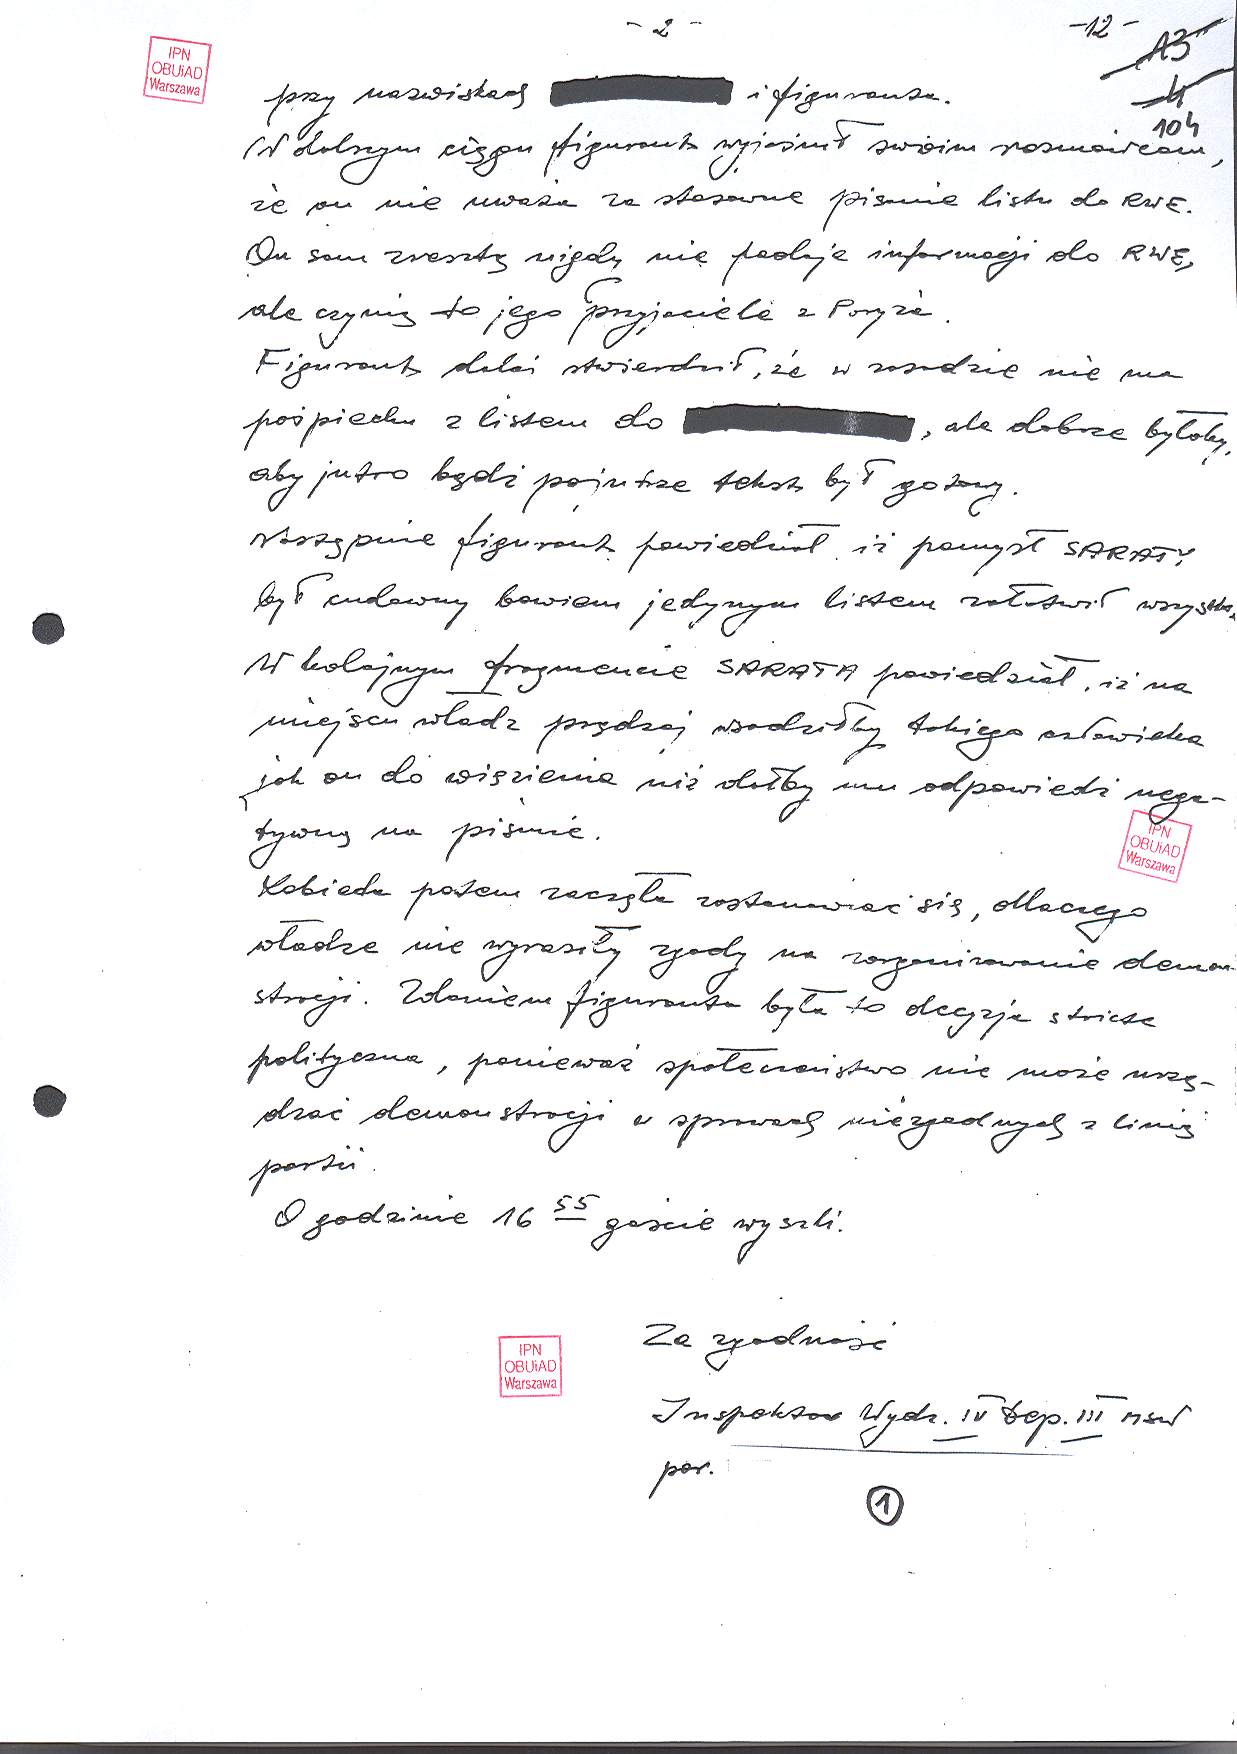 - 2 -
- 12 -
13
4
104
IPN
OBUiAD
Warszawa
przy nazwiskach i figuranta.
W dalszym ciągu figurant wyjaśnił swoim rozmówcom,
że on nie uważa za stosowne pisanie listu do RWE.
On sam zresztą nigdy nie podaje informacji do RWE,
ale czynią to jego przyjaciele z Paryża.
Figurant dalej stwierdził, że w zasadzie nie ma
pośpiechu z listem do , ale dobrze byłoby,
aby jutro bądź pojutrze tekst był gotowy.
Następnie figurant powiedział, iż pomysł SARATY
był cudowny bowiem jedynym listem załatwił wszystko.
W kolejnym fragmencie SARATA powiedział, iż na
miejscu władz prędzej wsadziłby takiego człowieka
jak on do więzienia niż dałby mu odpowiedź nega-
tywną na piśmie.
IPN
OBUiAD
Warszawa
Kobieta potem zaczęła zastanawiać się, dlaczego
władze nie wyraziły zgody na zorganizowanie demon-
stracji. Zdaniem figuranta była to decyzja stricte
polityczna, ponieważ społeczeństwo nie może urzą-
dzać demonstracji w sprawach niezgodnych z linią
partii.
O godzinie 16 55 goście wyszli.
Za zgodność
IPN
OBUiAD
Warszawa
Inspektor Wydz. IV Dep. III MSW
por.
1